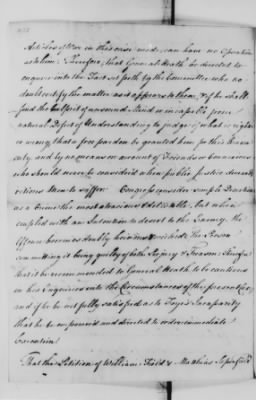 Articles of War in this case made, can have no Operation
as to him; Therefore, that General Heath be directed to
enquire into the Fact set forth by the Committee who no
doubt certify the matter as it appears to them, & if he shall
find the Culprit of unsound Mind or incapable from
natural Defect of Understanding to judge of what is right
or wrong, that a free pardon be granted him for this
and by no means on account of Friends or Connexions
who should never be considered when public Justice demands
vitious Men to suffer. Congress consider simple Desertion
as a Crime the most atrocious & detestable, but when
coupled with an Intention to desert to the Enemy, the
Offence becomes doubly heinous & wicked; the Person
committing it being guilty of both Perjury & Treason: Therefore
that it be recommended to General Heath to be cautious
in his Enquiries into the Circumstances of the present Case,
and if he be not fully satisfied as to Incapacity
that he be empowered and directed to order immediate
Execution.
That the Petition of William Field & Matthias